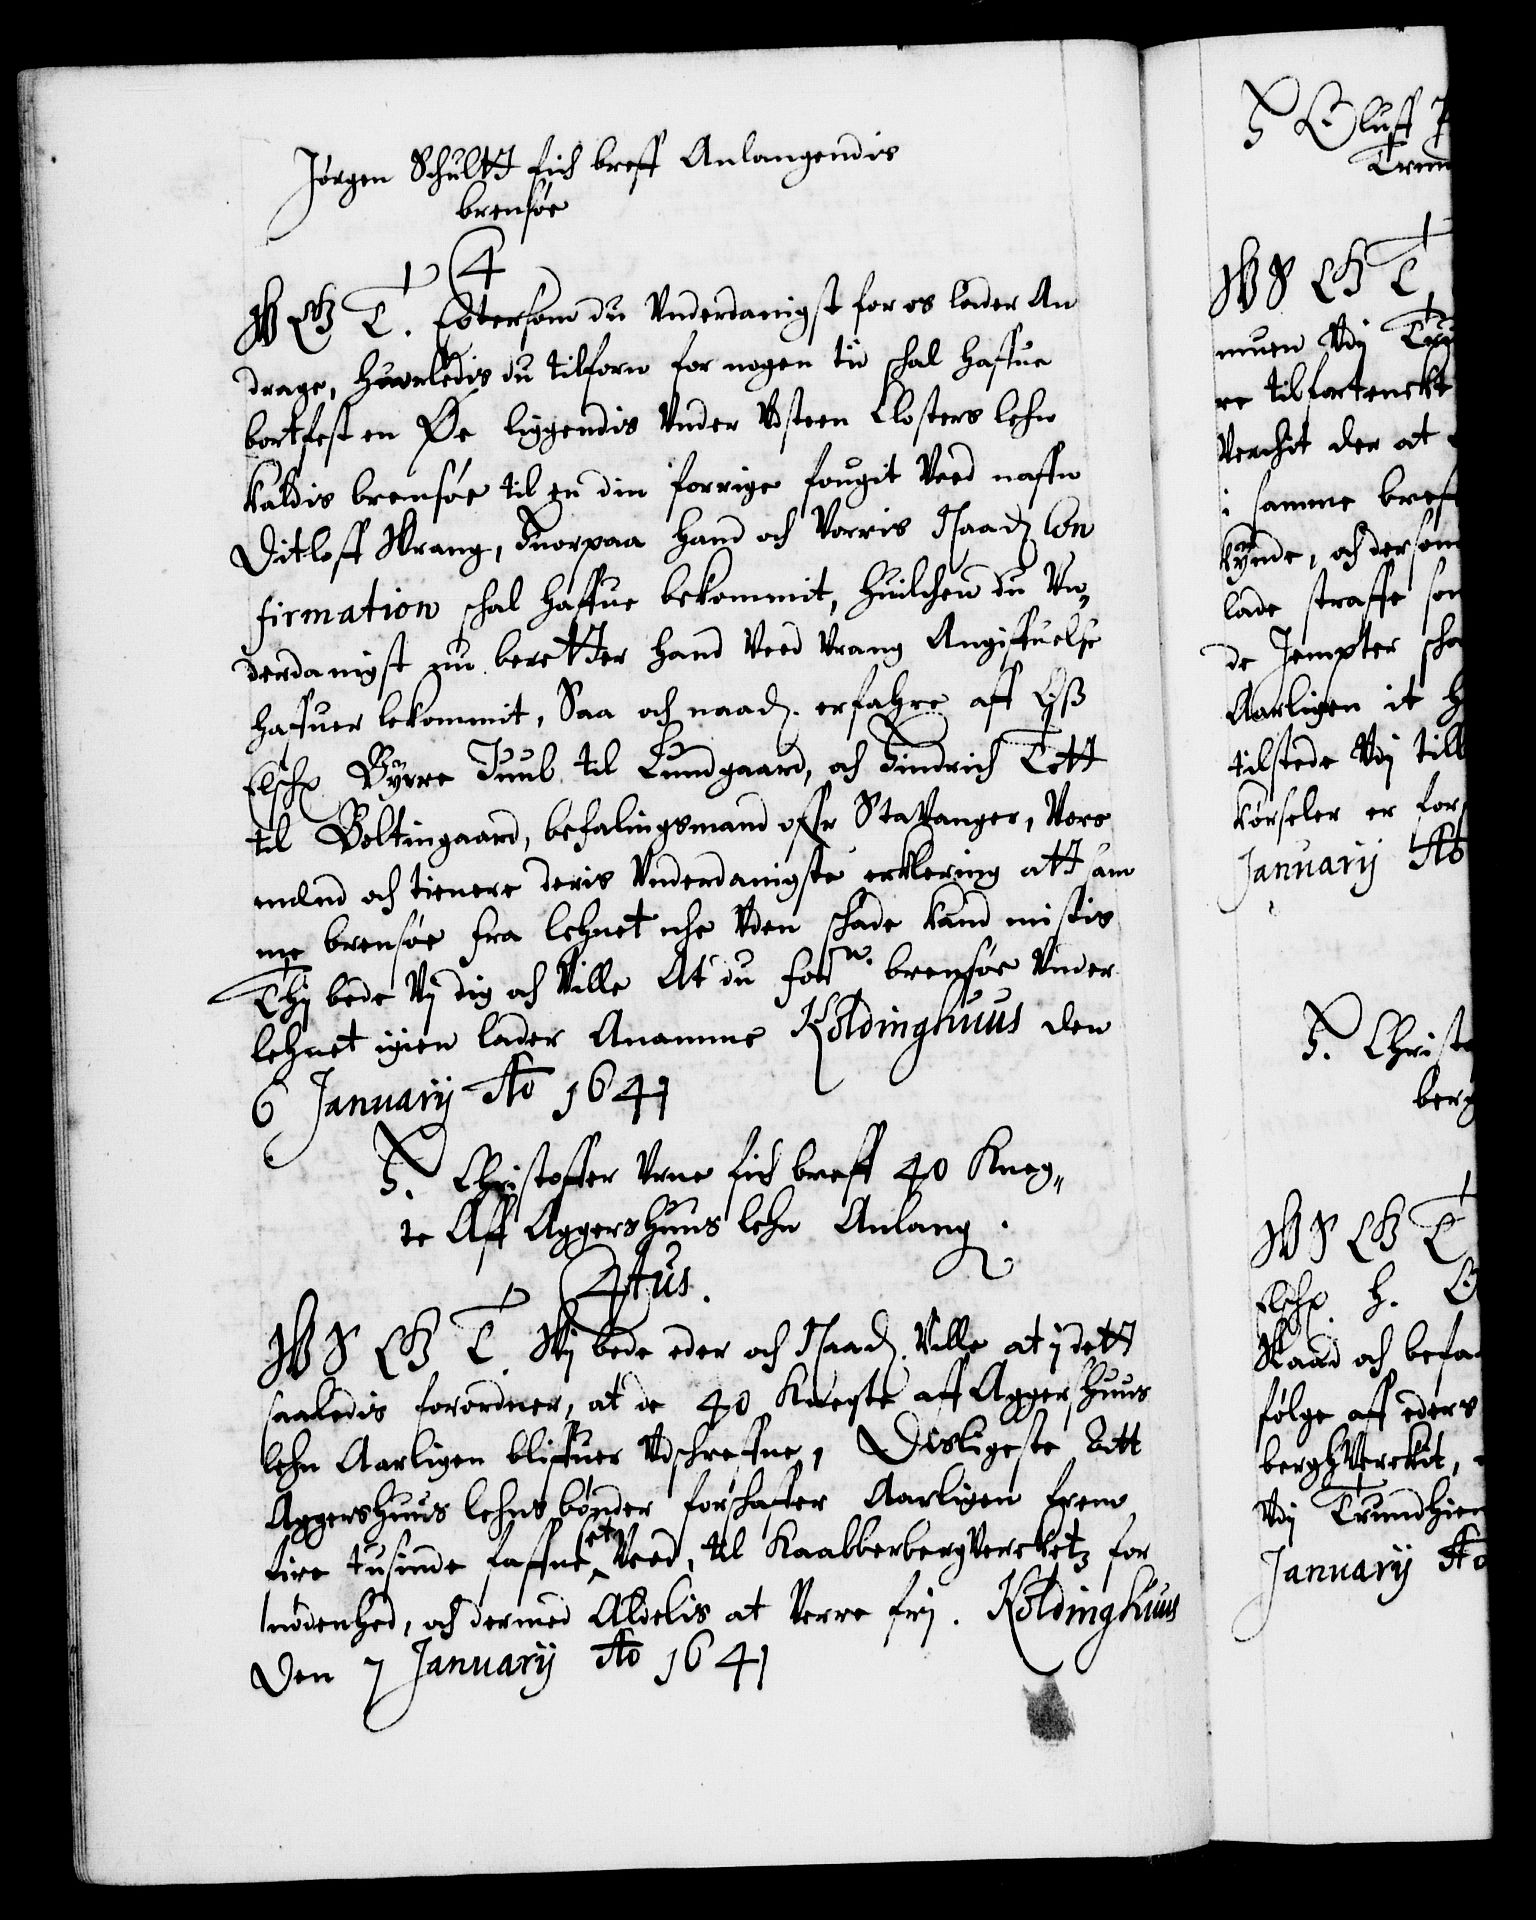 Jørgen Schultt fich breff Anlangendis
brensøe
C 4
W G T. Eftersom du Underdanigst for os lader An
drage, huorledis du tilforn for nogen tid schal haffue
bortfest en Øe liggendis Under Udsteen Closters lehn
kaldis brensøe til en din forrige fougit Ved naffn
Ditloff Wrang, Huorpaa hand och Vorris Naad. Con
firmation schal haffue bekommit, huilchen du Un,,
derdanigst nu beretter hand Ved Vrang Angiffuelse
haffuer bekommit, Saa och naad. erfahre aff Oß
Elsch. Byrre Juul til Lundgaard, och Hindrich Tott
til Boltinggaard, befalingsmand offr Stavanger, Vors
mænd och tienere deris Underdanigste erklering att sam
me brensøe fra lehnet iche Uden schade kand mistis
Thj bede Vj dig och Ville At du forn. brensøe Under
lehnet igien lader Anamme Koldinghuus den
6 Januarij Ao 1641
H. Christoffer Urne fich breff 40 Kneg,,
te Aff Aggershuus lehn Anlang.
C 4tus.
W S G T Wj bede eder och Naad. Ville at j dett
saaledis forordner, at de 40 Knegte aff Aggershuus
lehn Aarligen bliffuer Udschreffne, Disligeste Att
Aggershuus lehns bønder forschaffer Aarligen frem
fire tusinde faffne set Veed, til Kaabberbergverchetz for
nødenhed, och dermed Aldelis at Verre frj. Koldinghuus
Den 7 Januarij Ao 1641
H Oluff P
Trund
W S G T
muen Udj Tru
re tilfortenckt
Verchit der at
i samme breff
kynde, och dersom
lade straffe som
de Jempter scha
Aarligen it H
tilstede Udj till
kørseler er for
Januarij Ao
H. Christo
berg
W S G T
Elsch. H. O
Raad och befa
følge aff eders
bergVerckit,
Udj Trundhiem
Januarij Ao